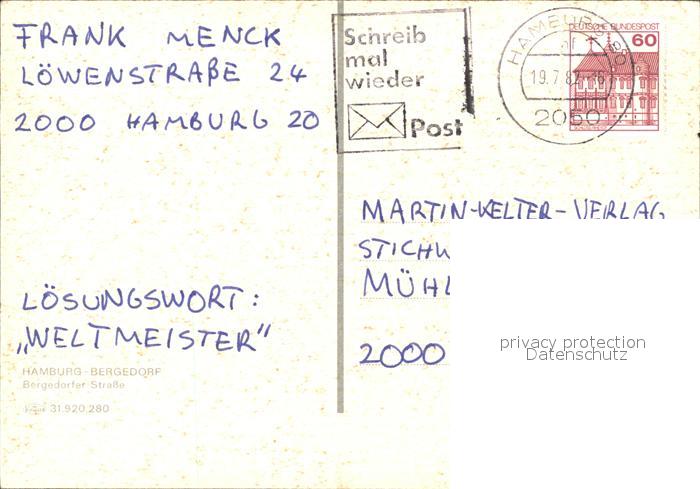 FRANK MENCK
LÖWENSTRAßE 24
2000 HAMBURG 20
Schreib
mal
wieder
Post
HAMBURG 80
19.7.82
2050
DEUTSCHE BUNDESPOST
60
MARTIN-KELTER-VERLAG
STICHW
MÜHL
2000
LÖSUNGSWORT:
„WELTMEISTER"
HAMBURG-BERGEDORF
Bergedorfer Straße
31.920.280
privacy protection
Datenschutz